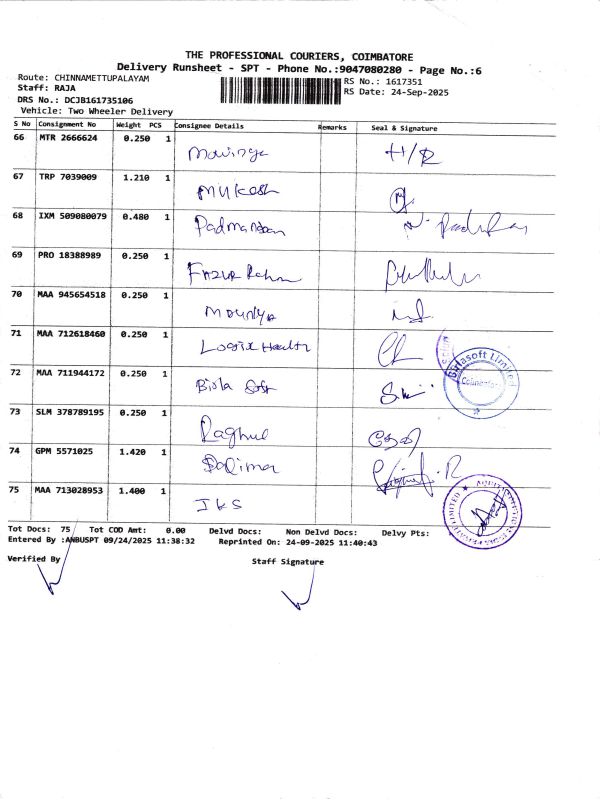 THE PROFESSIONAL COURIERS, COIMBATORE
Delivery Runsheet - SPT - Phone No.:9047080280 - Page No.:6
Route: CHINNAMETTUPALAYAM
RS No.: 1617351
Staff: RAJA
RS Date: 24-Sep-2025
DRS No.: DCJB161735106
Vehicle: Two Wheeler Delivery
S No Consignment No Weight PCS Consignee Details Remarks Seal & Signature
66 MTR 2666624 0.250 1
67 TRP 7039009 1.210 1 Mukesh
68 IXM 509080079 0.480 1
69 PRO 18388989 0.250 1
70 MAA 945654518 0.250 1 Mouniya
71 MAA 712618460 0.250 1 Logix Health
72 MAA 711944172 0.250 1 Birla Soft
Birlasoft Limited
Coimbatore
73 SLM 378789195 0.250 1 Raghul
74 GPM 5571025 1.420 1
75 MAA 713028953 1.400 1 IKS
Tot Docs: 75 Tot COD Amt: 0.00 Delvd Docs: Non Delvd Docs: Delvy Pts:
Entered By :ANBUSPT 09/24/2025 11:38:32 Reprinted On: 24-09-2025 11:40:43
Verified By Staff Signature